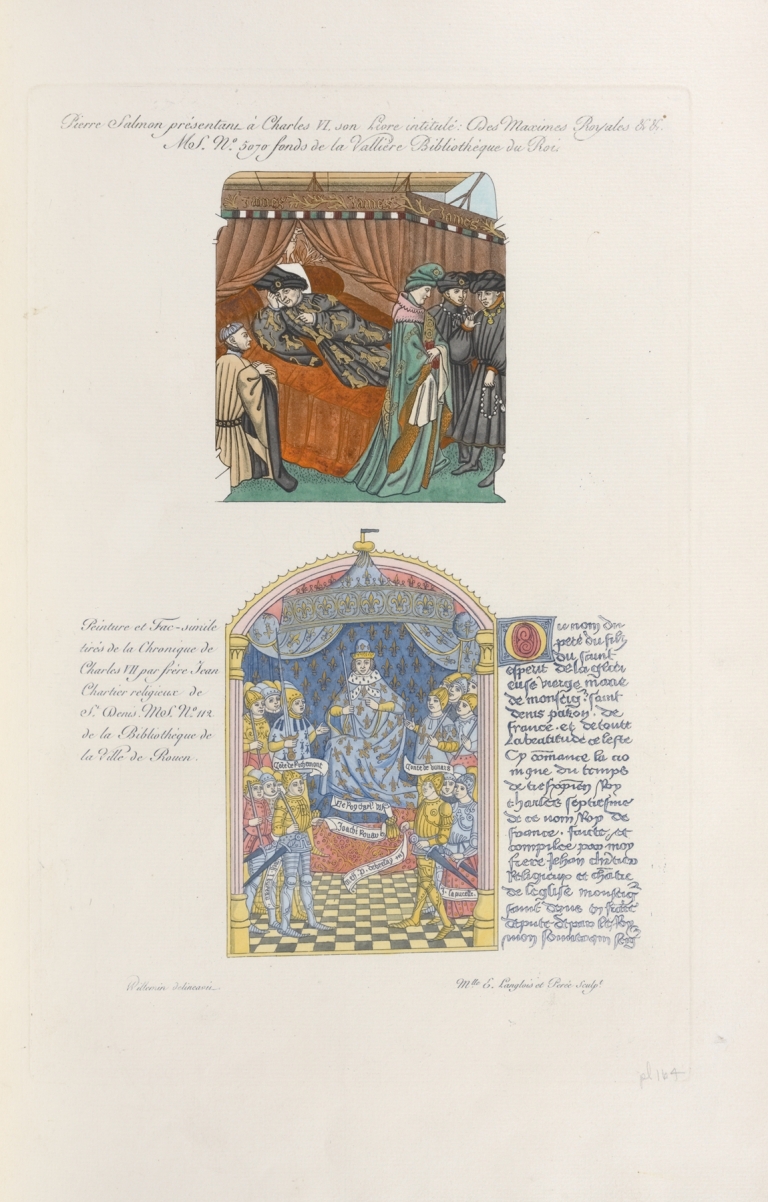 Pierre Salmon présentant à Charles VI, son Livre intitulé: Des Maximes Royales &c &c.
MS. N.º 5070 fonds de la Vallière Bibliothèque du Roi.
James James James
Peinture et Fac-simile
tirés de la Chronique de
Charles VII par frère Jean
Chartier religieux de
S.t Denis. MS. N.º 112
de la Bibliothèque de
la Ville de Rouen.
u nom du
pere du filz
du saint
esperit de la
euse vierge marie
de monseigr saint
denis patron de
france et de toute
la beatitude celeste
Cy comance la cro
nique du temps
de Roy
charles septiesme
de ce nom Roy de
france. faicte et
compilee par moy
frere Jehan
Religieux et
de leglise monseigr
saint denis
depute de par le
mon
Conte de
Conte de dunois
le Roy charles
Joachi Rouault
J. la pucelle
Willemin delineavit
M.lle E. Langlois et Perée Sculp.t
pl 164